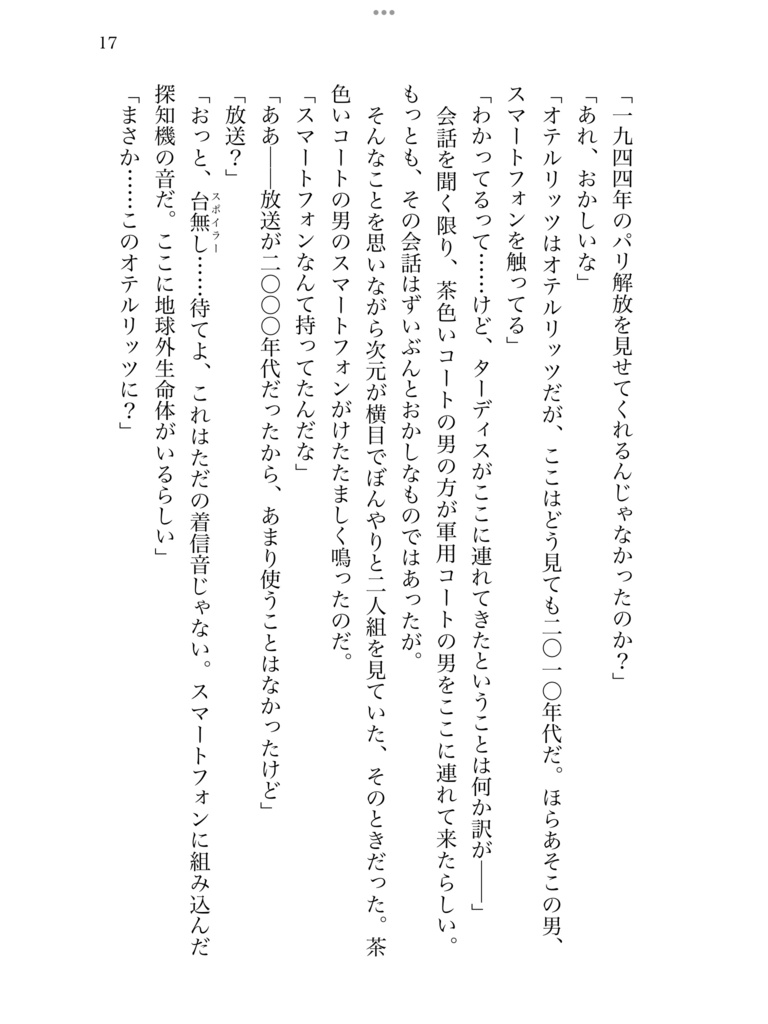 17
「一九四四年のパリ解放を見せてくれるんじゃなかったのか？」
「あれ、おかしいな」
「オテルリッツはオテルリッツだが、ここはどう見ても二〇一〇年代だ。ほらあそこの男、
スマートフォンを触ってる」
「わかってるって……けど、ターディスがここに連れてきたということは何か訳が――」
　会話を聞く限り、茶色いコートの男の方が軍用コートの男をここに連れて来たらしい。
もっとも、その会話はずいぶんとおかしなものではあったが。
　そんなことを思いながら次元が横目でぼんやりと二人組を見ていた、そのときだった。茶
色いコートの男のスマートフォンがけたたましく鳴ったのだ。
「スマートフォンなんて持ってたんだな」
「ああ――放送が二〇〇〇年代だったから、あまり使うことはなかったけど」
「放送？」
「おっと、台無し……待てよ、これはただの着信音じゃない。スマートフォンに組み込んだ
スポイラー
探知機の音だ。ここに地球外生命体がいるらしい」
「まさか……このオテルリッツに？」